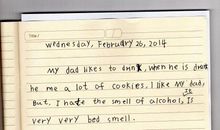 Title/
wednesday, February 26, 2014
My dad likes to drink, when he is drink
he me a lot of cookies, I like My dad,
But, I hate the smell of alcohol, Is
very very bed smell.